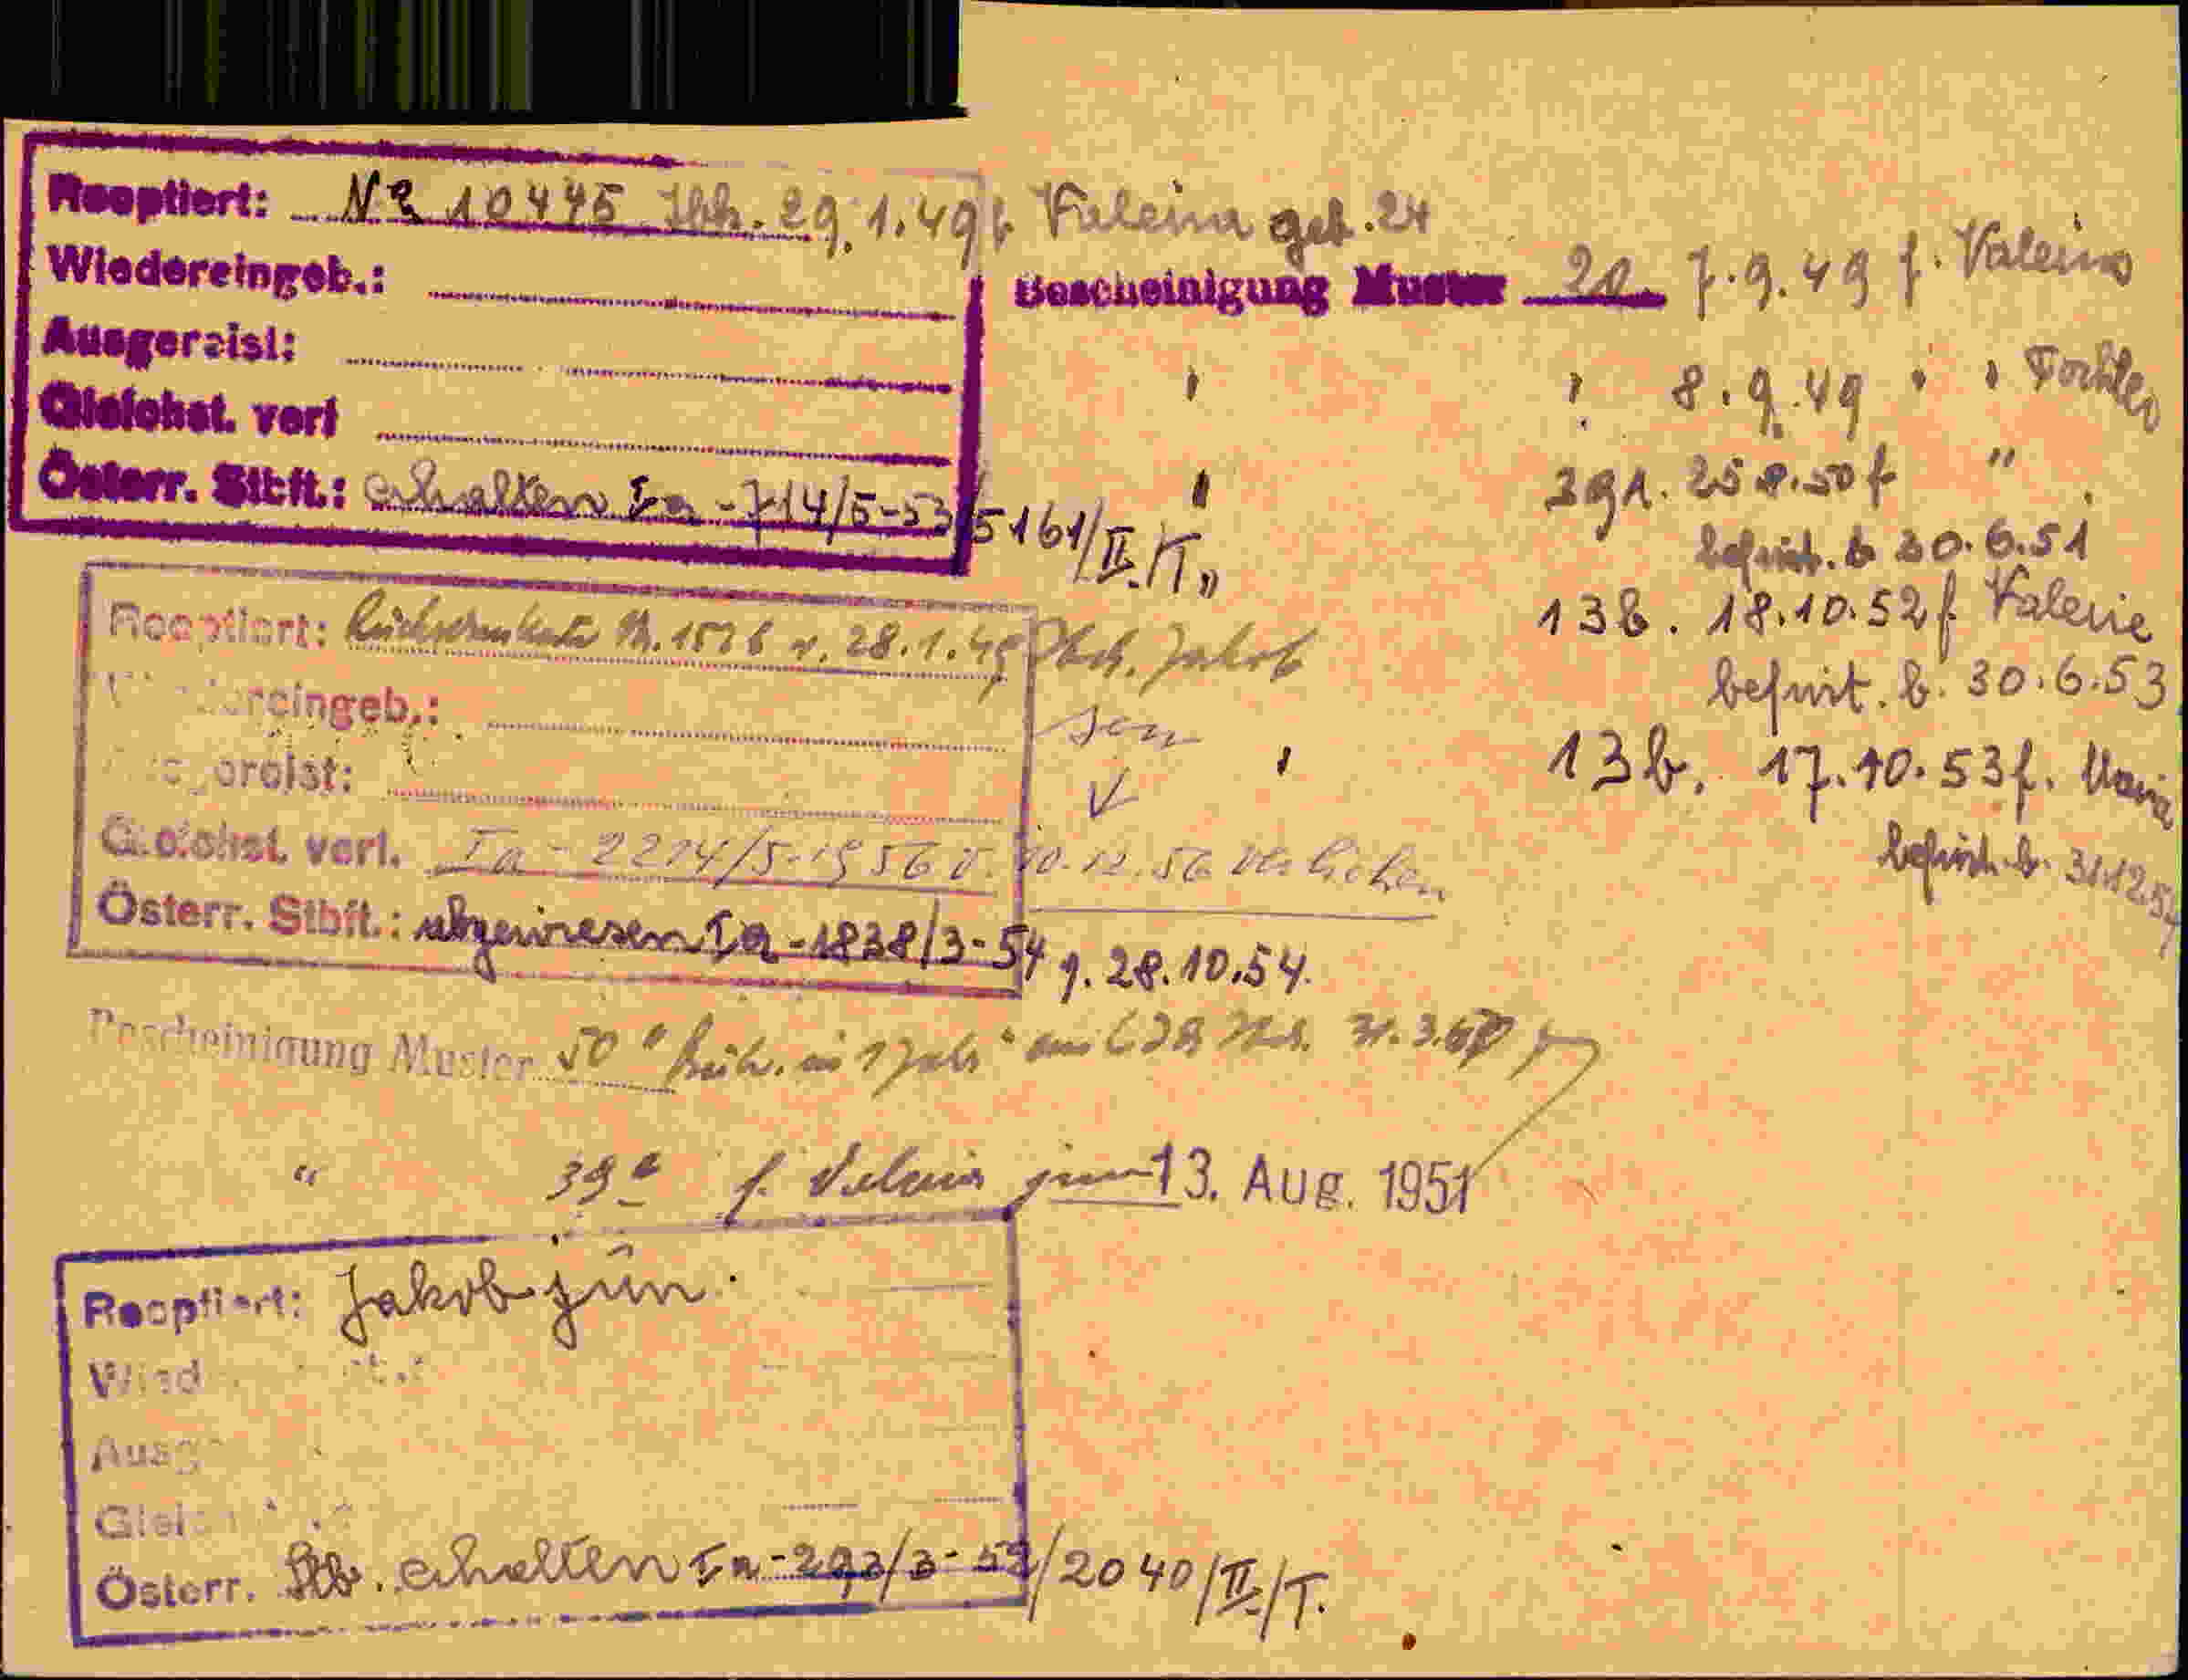 Reoptiert: No 10445 Ibk. 29.1.49 f. Valeria geb. 24
Wiedereingeb.:
Ausgereist:
Gleichst. verl
Österr. Stbft.: erhalten Ia - 714/5-53/5161/II./T.
Bescheinigung Muster 20. 7.9.49 f. Valeria
" " 8.9.49 " " Tochter
" 391. 25.8.50 f "
befrist. b 30.6.51
" 13b. 18.10.52 f Valerie
befrist. b. 30.6.53
" 13b. 17.10.53 f. Maria
befrist. b. 31.12.54
Reoptiert: 28.1.49 Ibk. Jakob
sen
Wiedereingeb.:
Ausgereist:
Gleichst. verl. Ia - 2214/5-1956 v. 10.12.56 verliehen
Österr. Stbft.: abgewiesen Ia - 1838/3-54 v. 28.10.54.
Bescheinigung Muster 50 " in 1 Jahr "
" 39a f. Valeria jun 13. Aug. 1951
Reoptiert: Jakob jun.
Wied
Ausg
Gleich
Österr. Stb. erhalten Ia - 293/3-53/2040/II./T.